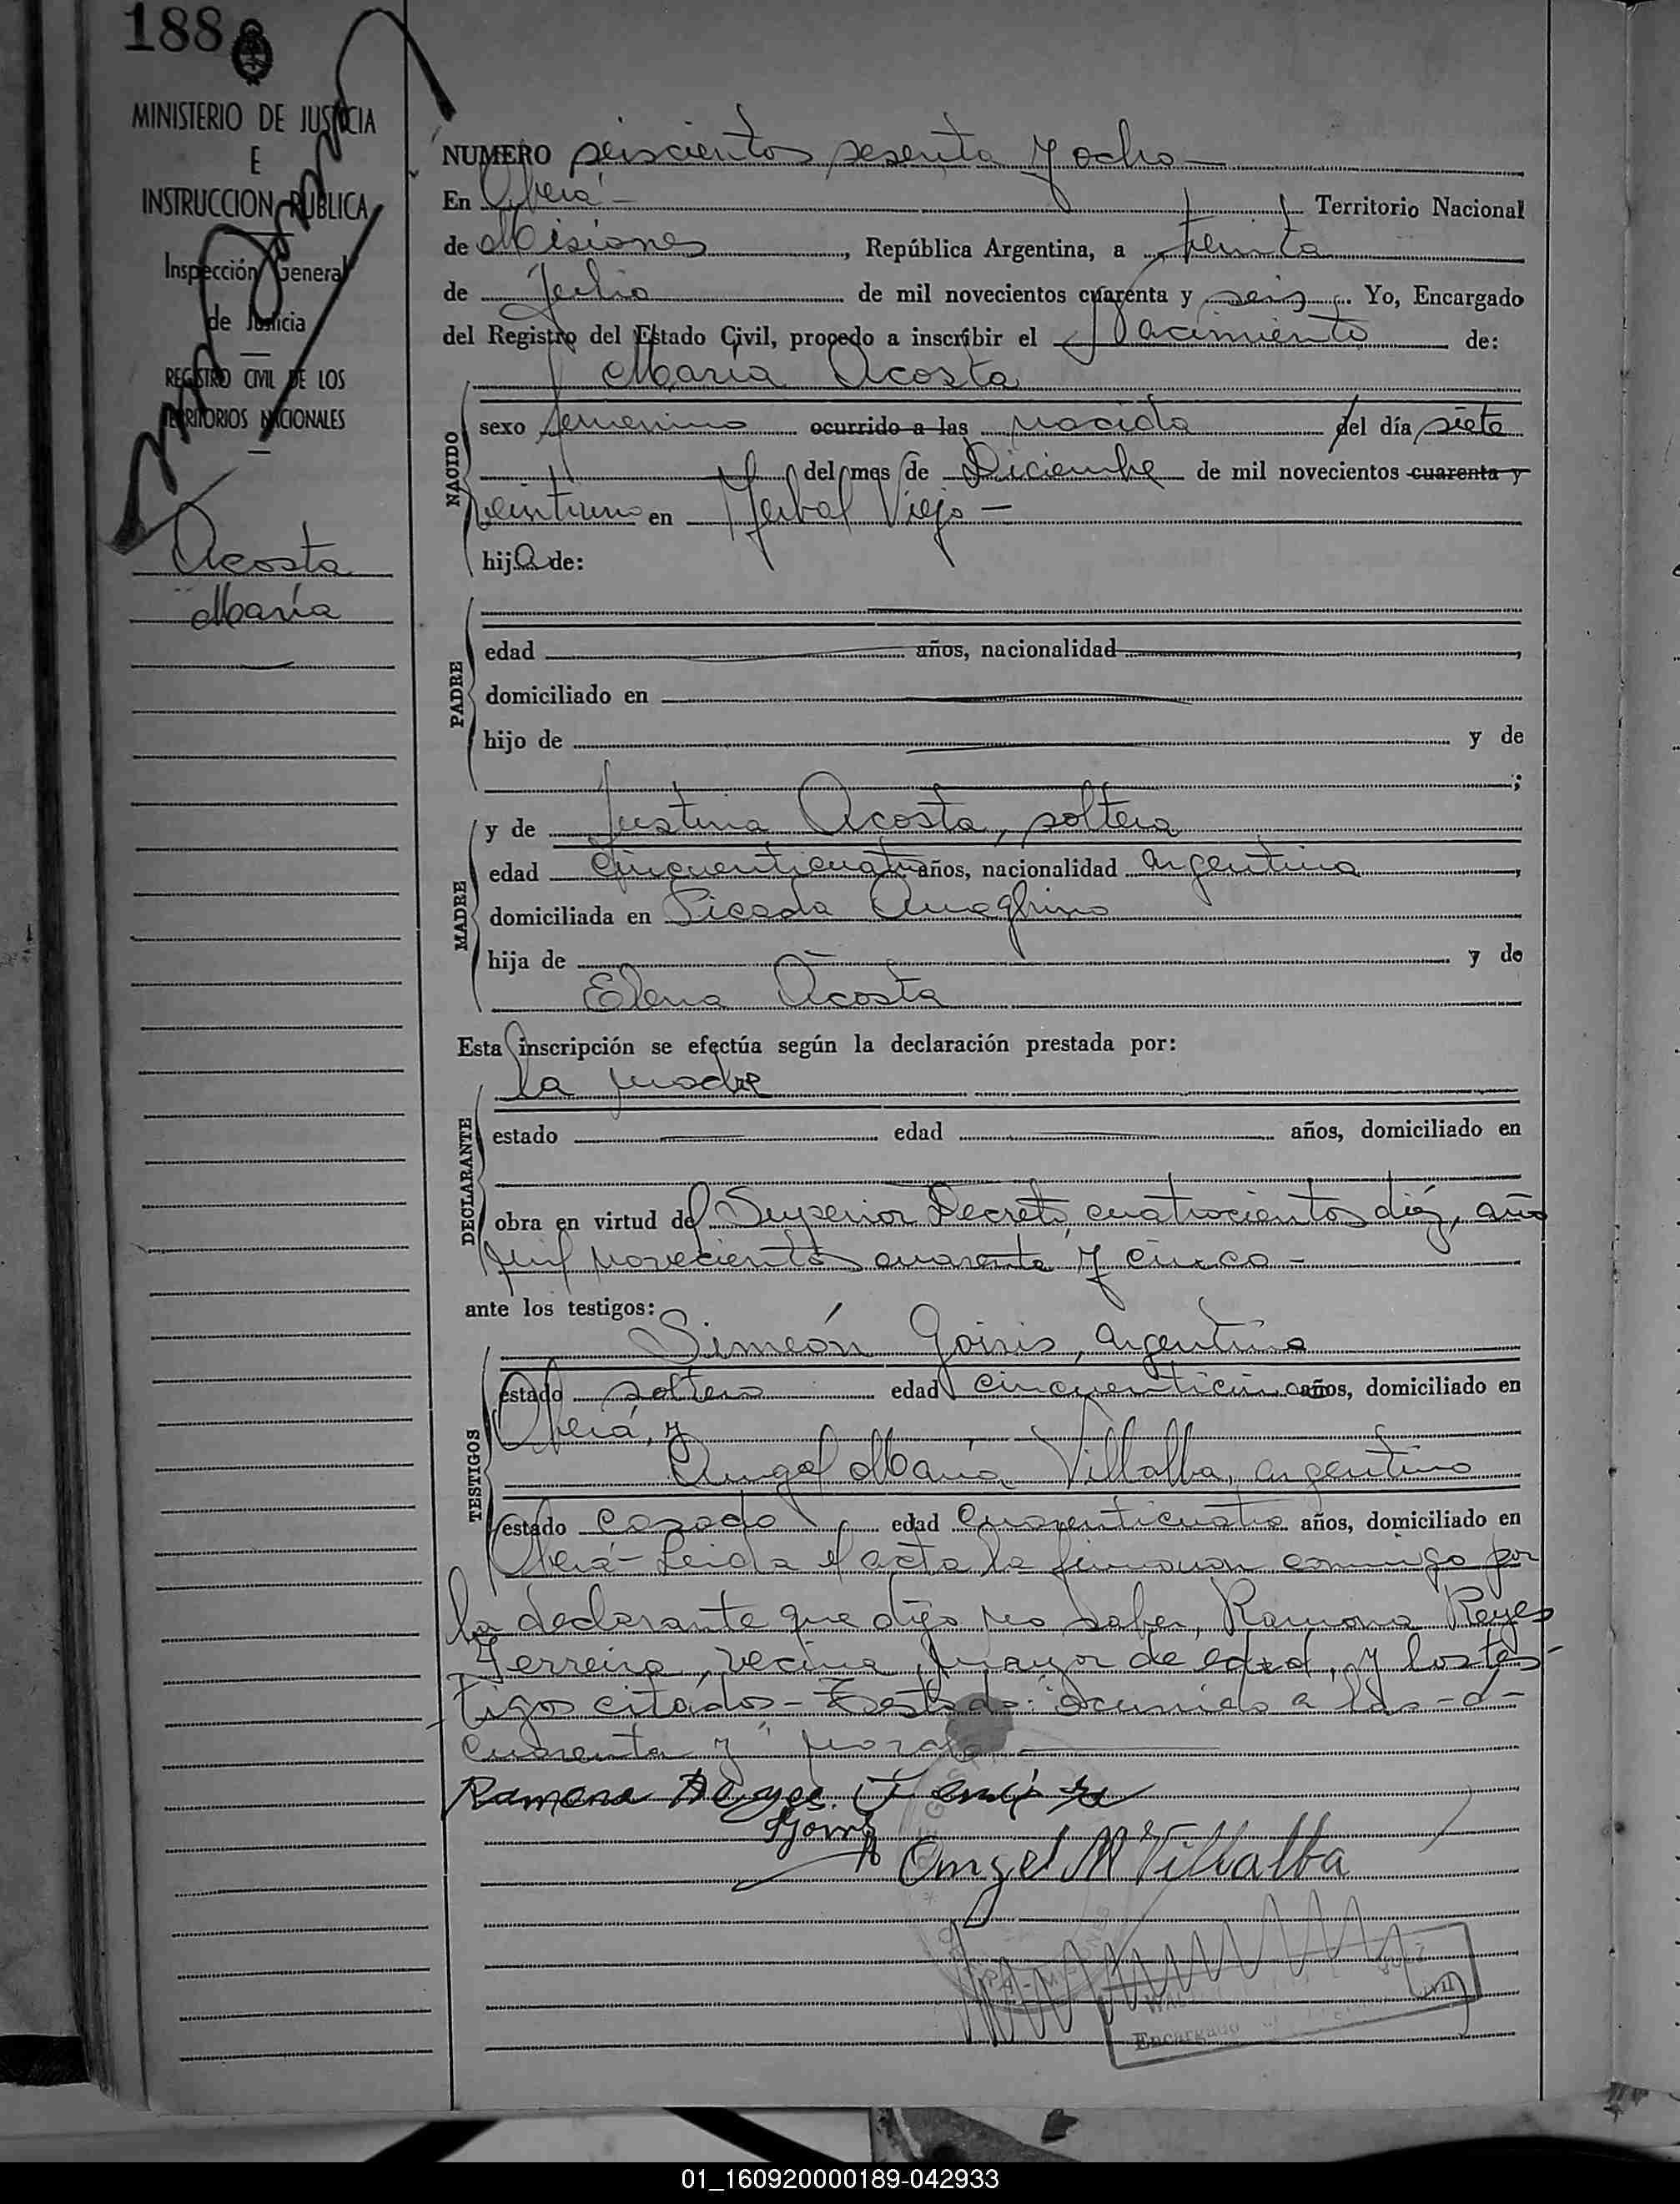 188
MINISTERIO DE JUSTICIA
E
INSTRUCCION PUBLICA
Inspección General
de Justicia
REGISTRO CIVIL DE LOS
TERRITORIOS NACIONALES
Acosta
María
NUMERO seiscientos sesenta y ocho
En Oberá Territorio Nacional
de Misiones, República Argentina, a treinta
de Julio de mil novecientos cuarenta y seis. Yo, Encargado
del Registro del Estado Civil, procedo a inscribir el Nacimiento de:
María Acosta
NACIDO
sexo femenino ocurrido a las nacida del día siete
del mes de Diciembre de mil novecientos cuarenta y
veintiuno en Yerbal Viejo -
hija de:
PADRE
edad años, nacionalidad
domiciliado en
hijo de y de
;
MADRE
y de Justina Acosta, soltera
edad cincuenticuatro años, nacionalidad argentina
domiciliada en Picada Ameghino
hija de y de
Elena Acosta
Esta inscripción se efectúa según la declaración prestada por:
la madre
DECLARANTE
estado edad años, domiciliado en
obra en virtud del Superior Decreto cuatrocientos diez, año
mil novecientos cuarenta y cinco -
ante los testigos:
TESTIGOS
Simeón Goiris, argentino
estado soltero edad cincuenticinco años, domiciliado en
Oberá, y
Angel María Villalba, argentino
estado casado edad cuarenticuatro años, domiciliado en
Oberá - Leida el acta la firmaron conmigo por
la declarante que dijo no saber, Ramona Reyes
Ferreira, vecina, mayor de edad, y los tes-
tigos citados - Testado: "ocurrido a las - d -
cuarenta y"
Ramona Reyes Ferreira
Goiris
Angel M Villalba
Encargado
01_160920000189-042933